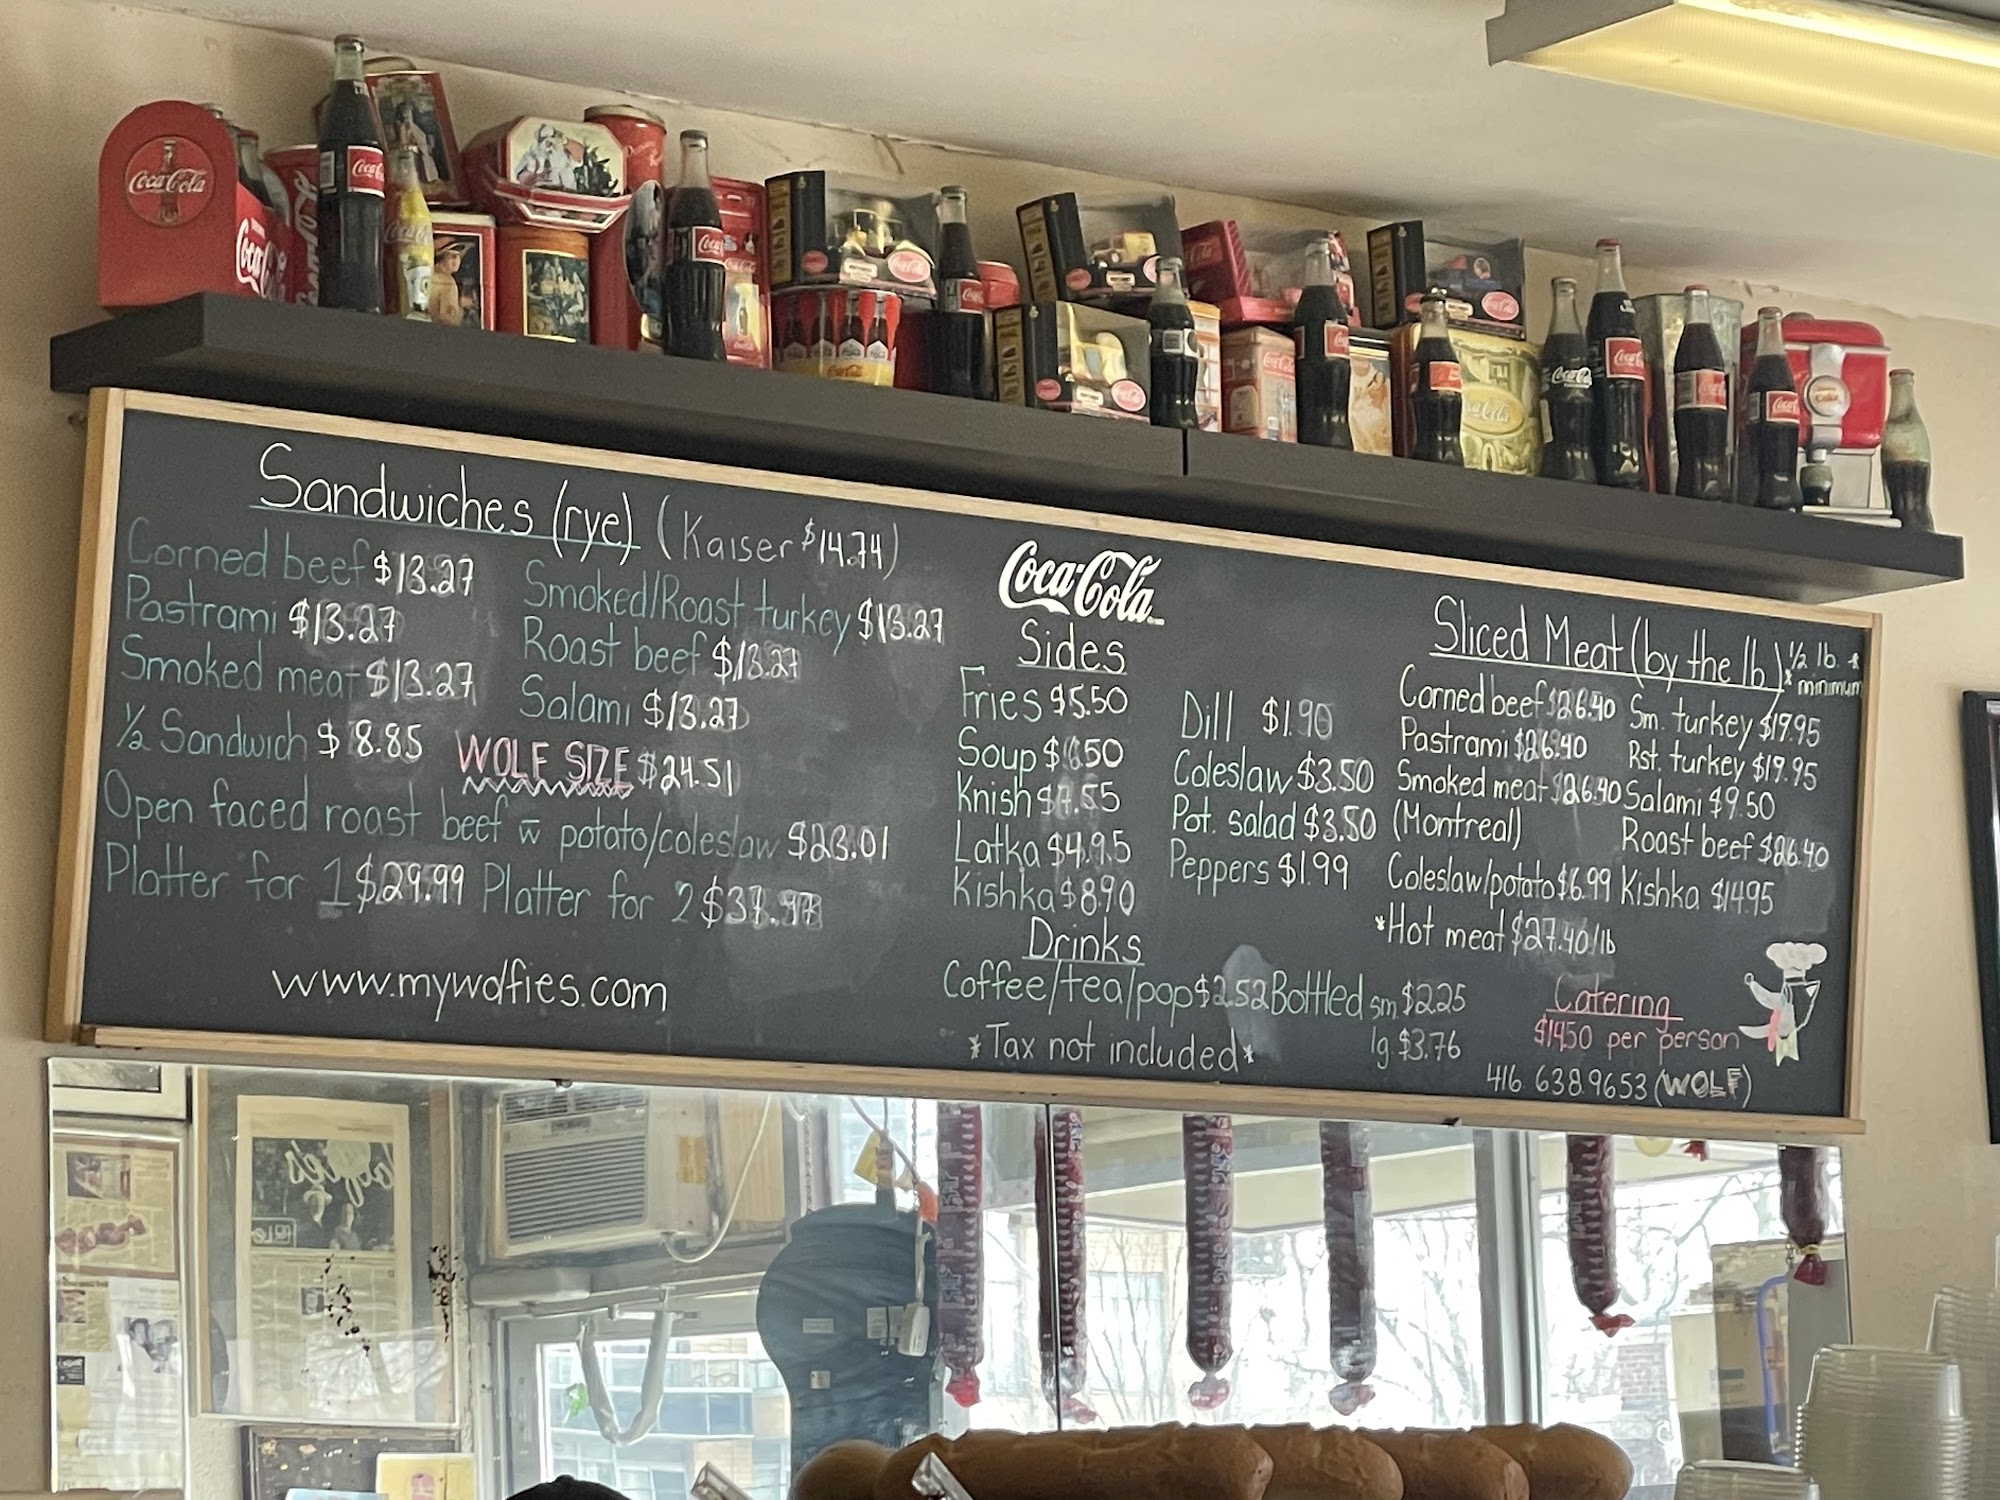 Coca-Cola
Coca-Cola
Coca-Cola
Coca-Cola
Coca-Cola
Coca-Cola
Sandwiches (rye) (Kaiser $14.74)
Corned beef $13.27
Pastrami $13.27
Smoked meat $13.27
½ Sandwich $8.85
Smoked/Roast turkey $13.27
Roast beef $13.27
Salami $13.27
WOLF SIZE $24.51
Open faced roast beef w̄ potato/coleslaw $23.01
Platter for 1 $29.99 Platter for 2
www.mywolfies.com
Coca-Cola
Sides
Fries $5.50
Soup
Knish
Latka $4.95
Kishka $8.90
Dill $1.90
Coleslaw $3.50
Pot. salad $3.50
Peppers $1.99
Drinks
Coffee/tea/pop $2.52 Bottled sm $2.25
lg. $3.76
*Tax not included*
Sliced Meat (by the lb) ½ lb. *
* minimum
Corned beef $26.40
Pastrami $26.40
Smoked meat $26.40
(Montreal)
Coleslaw/potato $6.99
*Hot meat $27.40/lb
Sm. turkey $19.95
Rst. turkey $19.95
Salami $9.50
Roast beef $26.40
Kishka $14.95
Catering
$14.50 per person
416.638.9653 (WOLF)